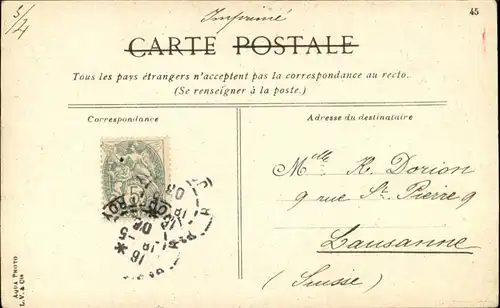 5/4
Imprimé
45
CARTE POSTALE
Tous les pays étrangers n'acceptent pas la correspondance au recto.
(Se renseigner à la poste.)
Correspondance
Adresse du destinataire
Mlle R. Dorion
9 rue St Pierre 9
Lausanne
(Suisse)
AQUA PHOTO
L.V. & Cie